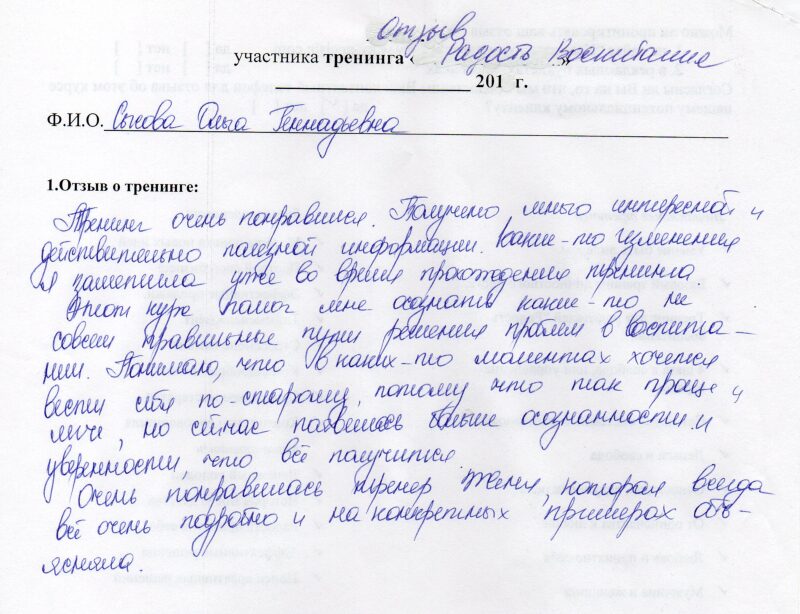 Отзыв
участника тренинга « Радость Воспитание »
201 г.
Ф.И.О. Сысова Ольга Геннадьевна
1.Отзыв о тренинге:
Тренинг очень понравился. Получено много интересной и
действительно полезной информации. Какие-то изменения
я заметила уже во время прохождения тренинга
Этот курс помог мне осознать какие-то не
совсем правильные пути решения проблем в воспита-
нии. Понимаю, что в каких-то моментах хочется
вести себя по-старому, потому что так проще и
легче, но сейчас появилась больше осознанности и
уверенности, что всё получится.
Очень понравилась тренер Женя, которая всегда
всё очень подробно и на конкретных примерах объ-
ясняла.